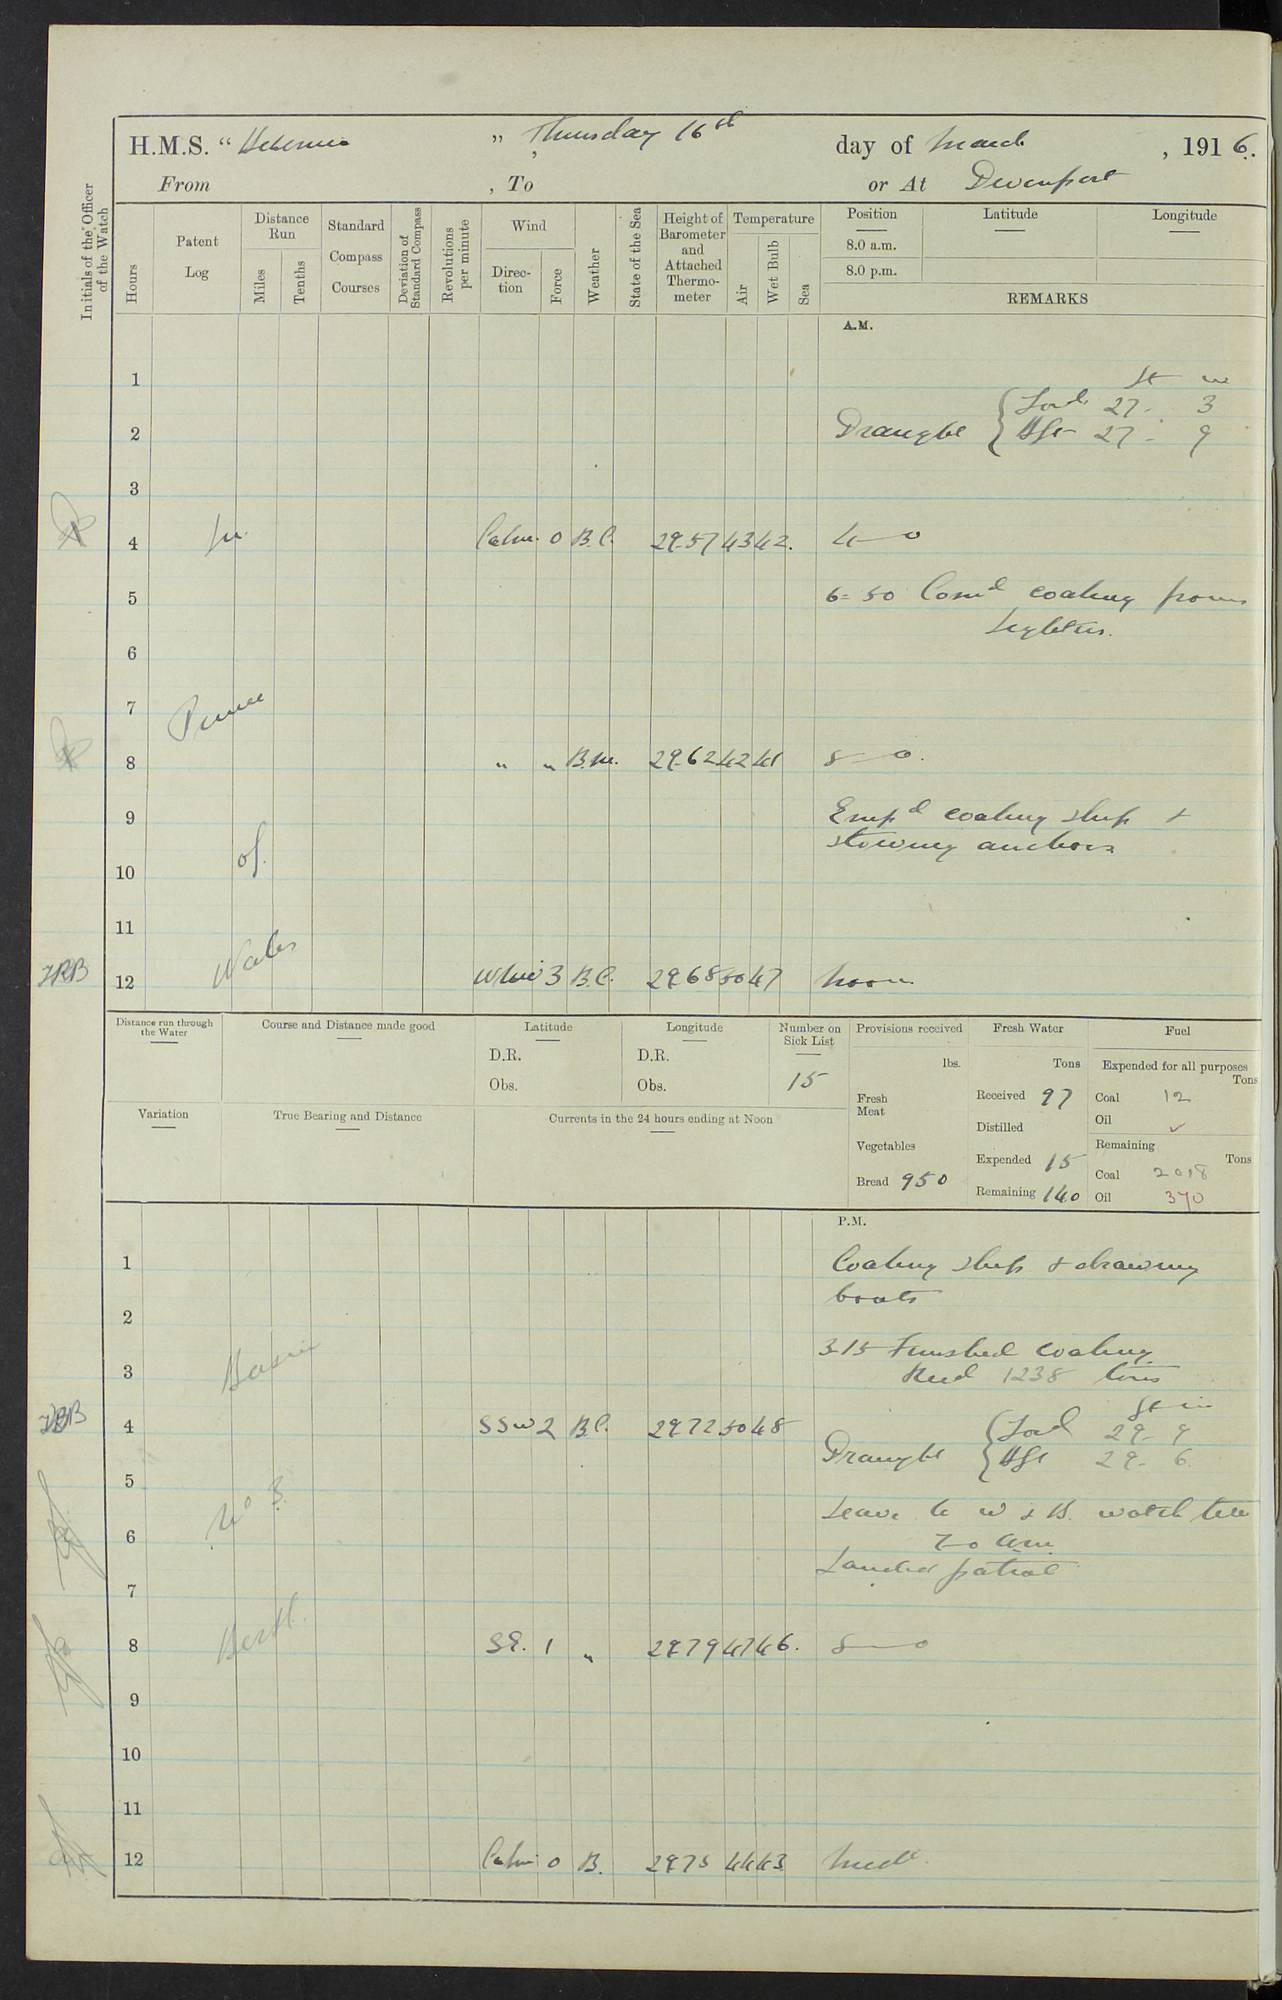 H.M.S. "Hibernia", Thursday 16th day of March, 1916.
From , To or At Devonport
Initials of the Officer of the Watch
Hours
Patent Log
Distance Run
Miles
Tenths
Standard Compass Courses
Deviation of Standard Compass
Revolutions per minute
Wind
Direction
Force
Weather
State of the Sea
Height of Barometer and Attached Thermometer
Temperature
Air
Wet Bulb
Sea
Position
Latitude
Longitude
8.0 a.m.
8.0 p.m.
REMARKS
A.M.
1
ft in
Draught { Ford 27 - 3
2
Aft 27 - 9
3
4 In Calm 0 B.C. 29.57 43 42. 4—0
5 6-50 Comd coaling from
Lighters.
6
7 Prince
8 " " B.M. 29.62 42 41 8—0.
9 Empd coaling ship &
stowing anchors
10 of
11
JRB 12 Wales WNW 3 B.C. 29.68 50 47 Noon
Distance run through the Water
Course and Distance made good
Latitude
D.R.
Obs.
Longitude
D.R.
Obs.
Number on Sick List
15
Variation
True Bearing and Distance
Currents in the 24 hours ending at Noon
Provisions received
lbs.
Fresh Meat
Vegetables
Bread 950
Fresh Water
Tons
Received 97
Distilled
Expended 15
Remaining 140
Fuel
Expended for all purposes
Tons
Coal 12
Oil ✓
Remaining
Tons
Coal 2018
Oil 370
P.M.
1 Coaling ship & drawing
boats
2
3-15 Finished coaling
3 Basin Recd 1238 tons
ft in
4 SSW 2 B.C. 29.72 50 48 Draught { Ford 29 - 9
Aft 29 - 6
5
No 3 Leave to W & B. watch till
6 7-0 am
Landed patrol
7
8 Berth. SE. 1 " 29.79 47 46. 8—0
9
10
11
12 Calm 0 B. 29.75 44 43 Midt.